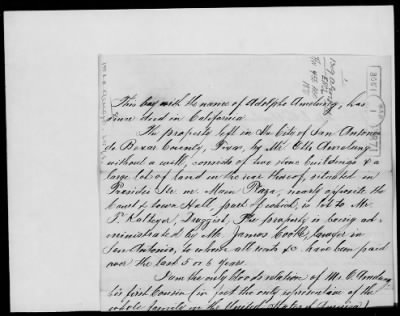 This boy with the name of Adolphe Amelung, has
since died in California
The property left in the City of San Antonio
de Bexar County, Texas, by Mr. Otto Amelung
without a will, consists of two stone buildings & a
large lot of land in the rear thereof, situated in
Presidio Str. or Main Plaza, nearly opposite the
Court & Town Hall, part of which is let to Mr.
F. Kalteyer, Druggist, The property is being ad-
ministrated by Mr. James lawyer in
San Antonio, to whom all rents &c have been paid
over the last 5 or 6 years.
I am the only blood relation of Mr. O. Amelung
his first Cousin (in fact the only representative of the
whole family in the United States of America)